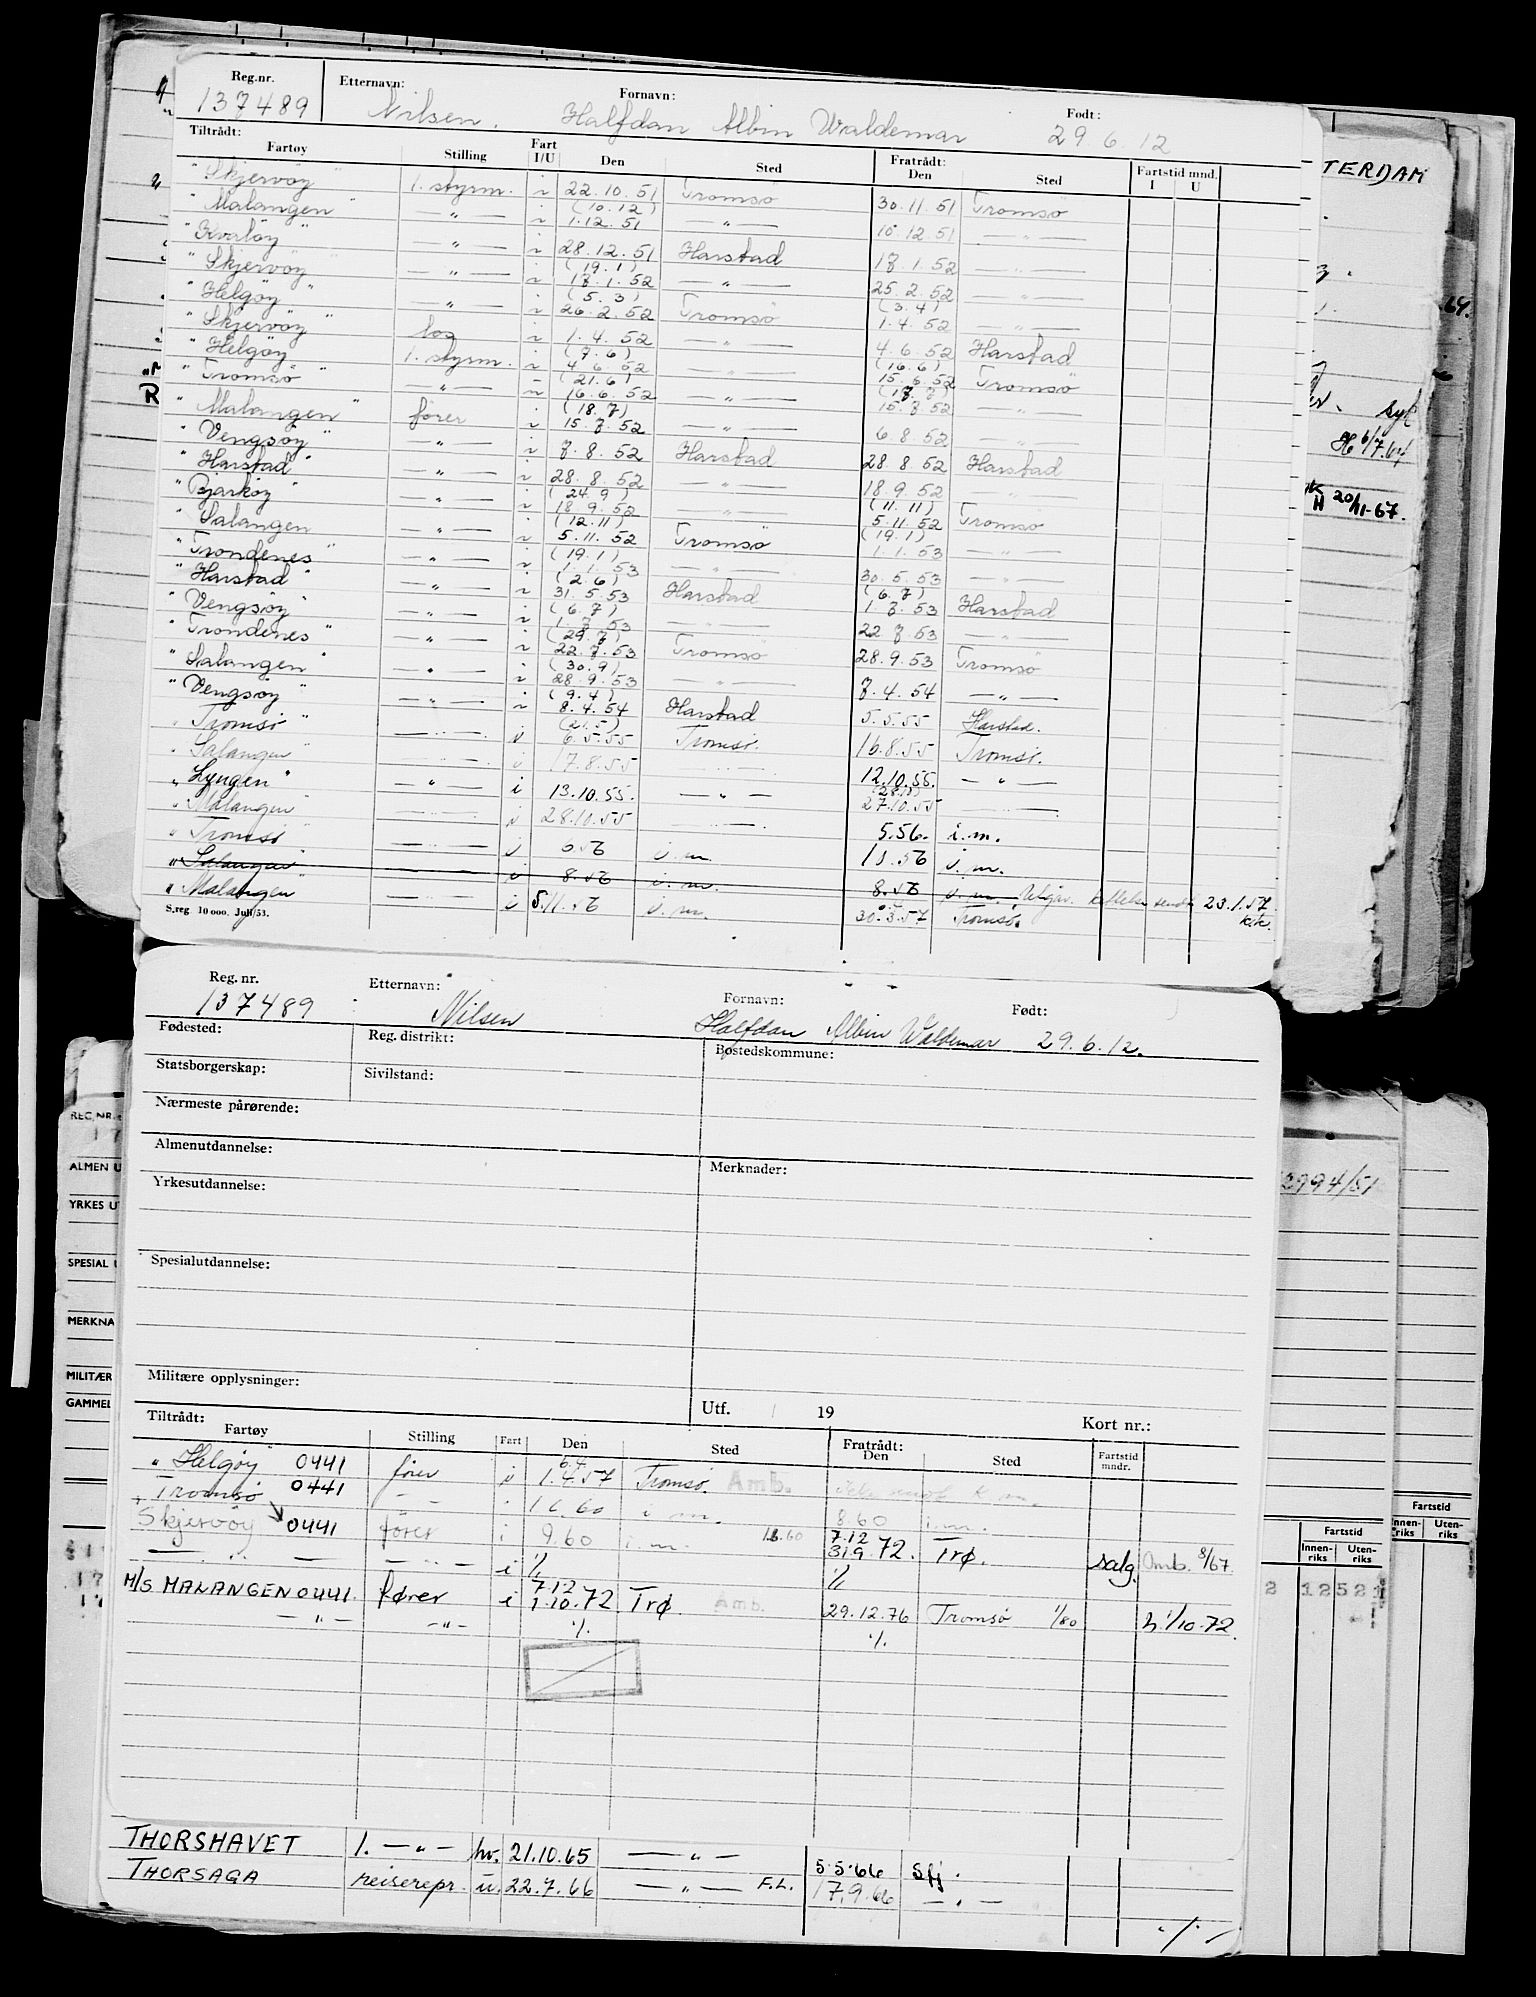 Reg.nr. Etternavn: Fornavn: Født:
137489 Nilsen. Halfdan Albin Waldemar 29.6.12
Tiltrådt: Fratrådt:
Fartøy Stilling Fart I/U Den Sted Den Sted Fartstid mnd. I U
"Skjervøy" 1. styrm. i 22.10.51 Tromsö 30.11.51 Tromsö
"Malangen" — " — i (10.12) 1.12.51 — " — 10.12.51 — " —
"Kvaløy" — " — i 28.12.51 Harstad 17.1.52 — " —
"Skjervöy" — " — i (19.1) 17.1.52 — " — 25.2.52 — " —
"Helgöy" — " — i (5.3) 26.2.52 Tromsö (3.4) 1.4.52 — " —
"Skjervöy" los i 1.4.52 — " — 4.6.52 Harstad
"Helgöy" 1. styrm. i (7.6) 4.6.52 — " — (16.6) 15.6.52 Tromsö
"Tromsö" — " — i (21.6) 16.6.52 — " — (17.7) 15.7.52 — " —
"Malangen" förer i (18.7) 15.7.52 — " — 6.8.52 — " —
"Vengsöy" — " — i 7.8.52 Harstad 28.8.52 Harstad
"Harstad" — " — i 28.8.52 — " — 18.9.52 — " —
"Bjarköy" — " — i (24.9) 18.9.52 — " — (11.11) 5.11.52 Tromsö
"Salangen" — " — i (12.11) 5.11.52 Tromsö (19.1) 1.1.53 — " —
"Trondenes" — " — i (19.1) 1.1.53 — " — 30.5.53 — " —
"Harstad" — " — i (2.6) 31.5.53 Harstad (6.7) 1.7.53 Harstad
"Vengsöy" — " — i (6.7) 1.7.53 — " — 22.7.53 — " —
"Trondenes" — " — i (29.7) 22.7.53 Tromsö 28.9.53 Tromsö
"Salangen" — " — i (30.9) 28.9.53 — " — 7.4.54 — " —
"Vengsöy" — " — i (9.4) 8.4.54 Harstad 5.5.55 Harstad.
"Tromsö" — " — i (21.5) 6.5.55 Tromsö. 16.8.55 Tromsö.
"Salangen" — " — i 17.8.55 — " — 12.10.55. — " —
"Lyngen" — " — i 13.10.55. — " — 27.10.55 — " —
"Malangen" — " — i 28.10.55 — " — 5.56. i.m.
"Tromsö" — " — i 6.56 i.m. 11.56 i.m.
"Salangen" i 8.56 i.m. 8.56 i.m. 23.1.57
"Malangen" — " — i 5.11.56 i.m. 30.3.57 Tromsö.
S.reg 10 000. Juli/53.
Reg. nr. Etternavn: Fornavn: Født:
137489 Nilsen Halfdan Albin Waldemar 29.6.12.
Fødested: Reg. distrikt: Bostedskommune:
Statsborgerskap: Sivilstand:
Nærmeste pårørende:
Almenutdannelse:
Merknader:
Yrkesutdannelse:
Spesialutdannelse:
Militære opplysninger:
Utf. 19 Kort nr.:
Tiltrådt: Fratrådt:
Fartøy Stilling Fart Den Sted Den Sted Fartstid mndr.
"Helgöy 0441 fører i 6.4 1.4.57 Tromsö. Amb.
Tromsö 0441 — " — i 1.6.60 i m. 8.60 i.m.
Skjervöy 0441 fører i 9.60 i m 7.12 31.9.72. Trø. salg. Omb. 8/67
— " — — " — i ./. ./.
M/S MALANGEN 0441. fører i 7.12 1.10.72 Trø. Amb. 29.12.76 Tromsö 1/80 h. 1/10-72.
— " — — " — ./. ./.
THORSHAVET 1. — " — hv. 21.10.65 — " — 5.5.66 sfj.
THORSAGA reiserepr. u. 22.7.66 — " — F.L. 17.9.66 — " —
./.
TERDAM
64.
syk
H 6/7.64
H 20/11-67.
2994/51
REG.NR.
17
ALMEN U
YRKES U
SPESIAL U
MERKNA
MILITÆR
GAMMEL
Fartstid
Innen-riks Uten-riks
Fartstid
Innen-riks Uten-riks
2 12 52